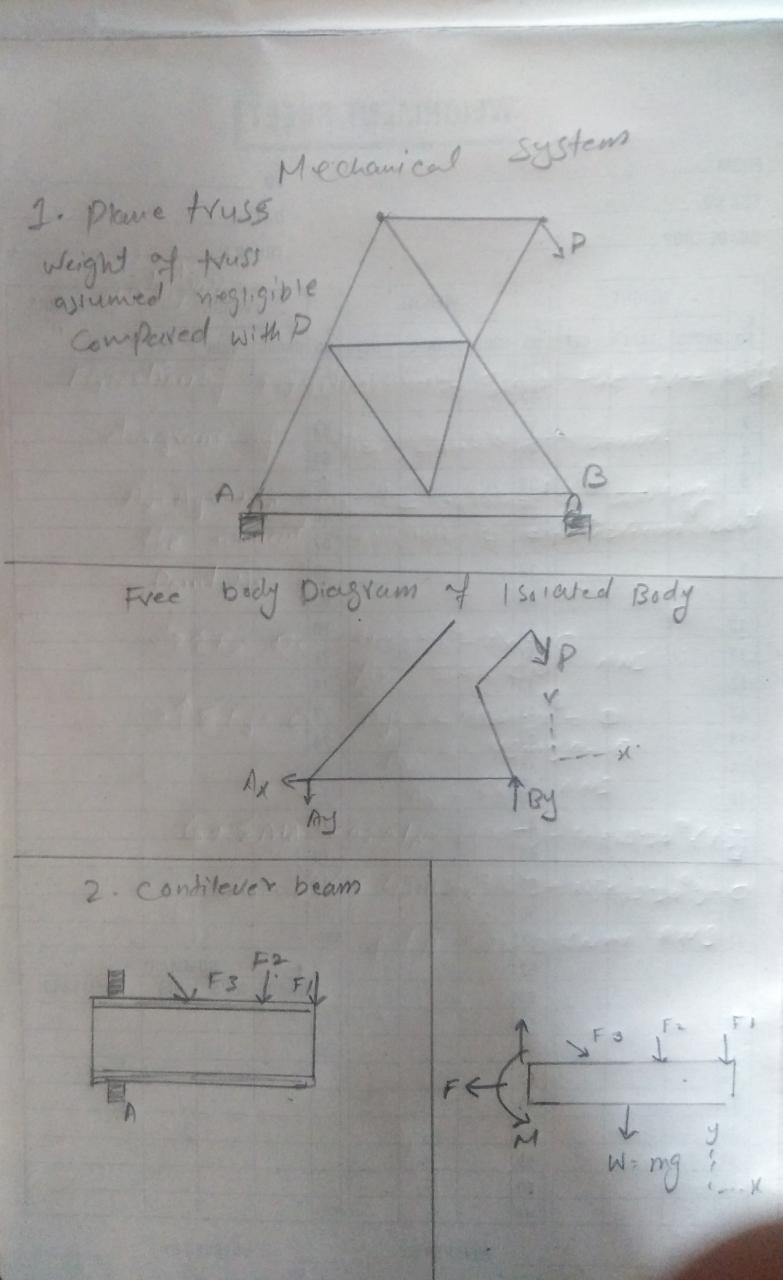 Mechanical Systems
1. Plane truss
Weight of truss
assumed negligible
Compared with P
P
A
B
Free body Diagram of Isolated Body
P
Y
X
Ax
Ay
By
2. Cantilever beam
F3
F2
F1
A
F3
F2
F1
F
M
W = mg
y
x